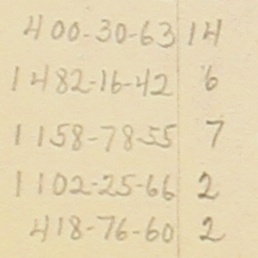 400-30-63 14
1482-16-42 6
1158-78-55 7
1102-25-66 2
418-76-60 2